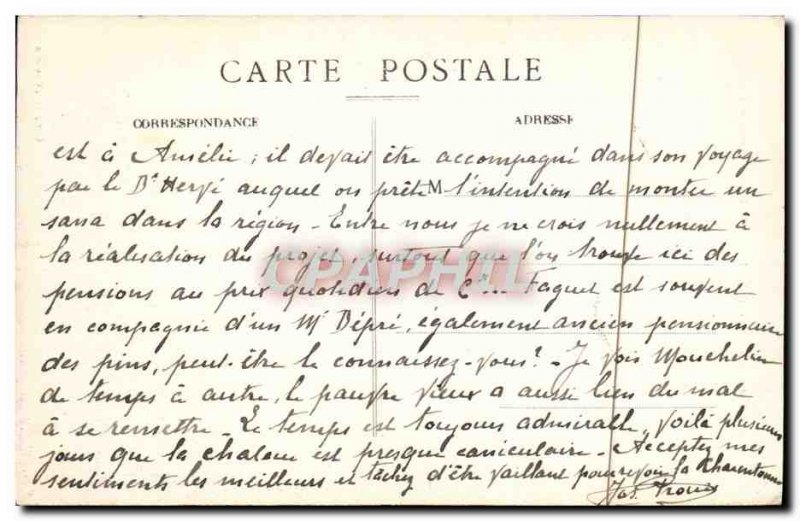 CARTE POSTALE
CORRESPONDANCE
ADRESSE
est à Amélie ; il devait être accompagné dans son voyage
par le Dr Hervé auquel on prête M l'intention de monter un
sana dans la région - Entre nous je ne crois nullement à
la réalisation du projet, surtout que l'on trouve ici des
pensions au prix quotidien de Faguet est souvent
en compagnie d'un Mr Dépré, également ancien pensionnaire
des pins, peut-être le connaissez-vous? - Je vois Mouchelin
de temps à autre, le pauvre vieux a aussi bien du mal
à se remettre - Le temps est toujours admirable, voilà plusieurs
jours que la chaleur est presque caniculaire - Acceptez mes
sentiments les meilleurs et tâchez d'être vaillant pour revoir la
CPAPHIL